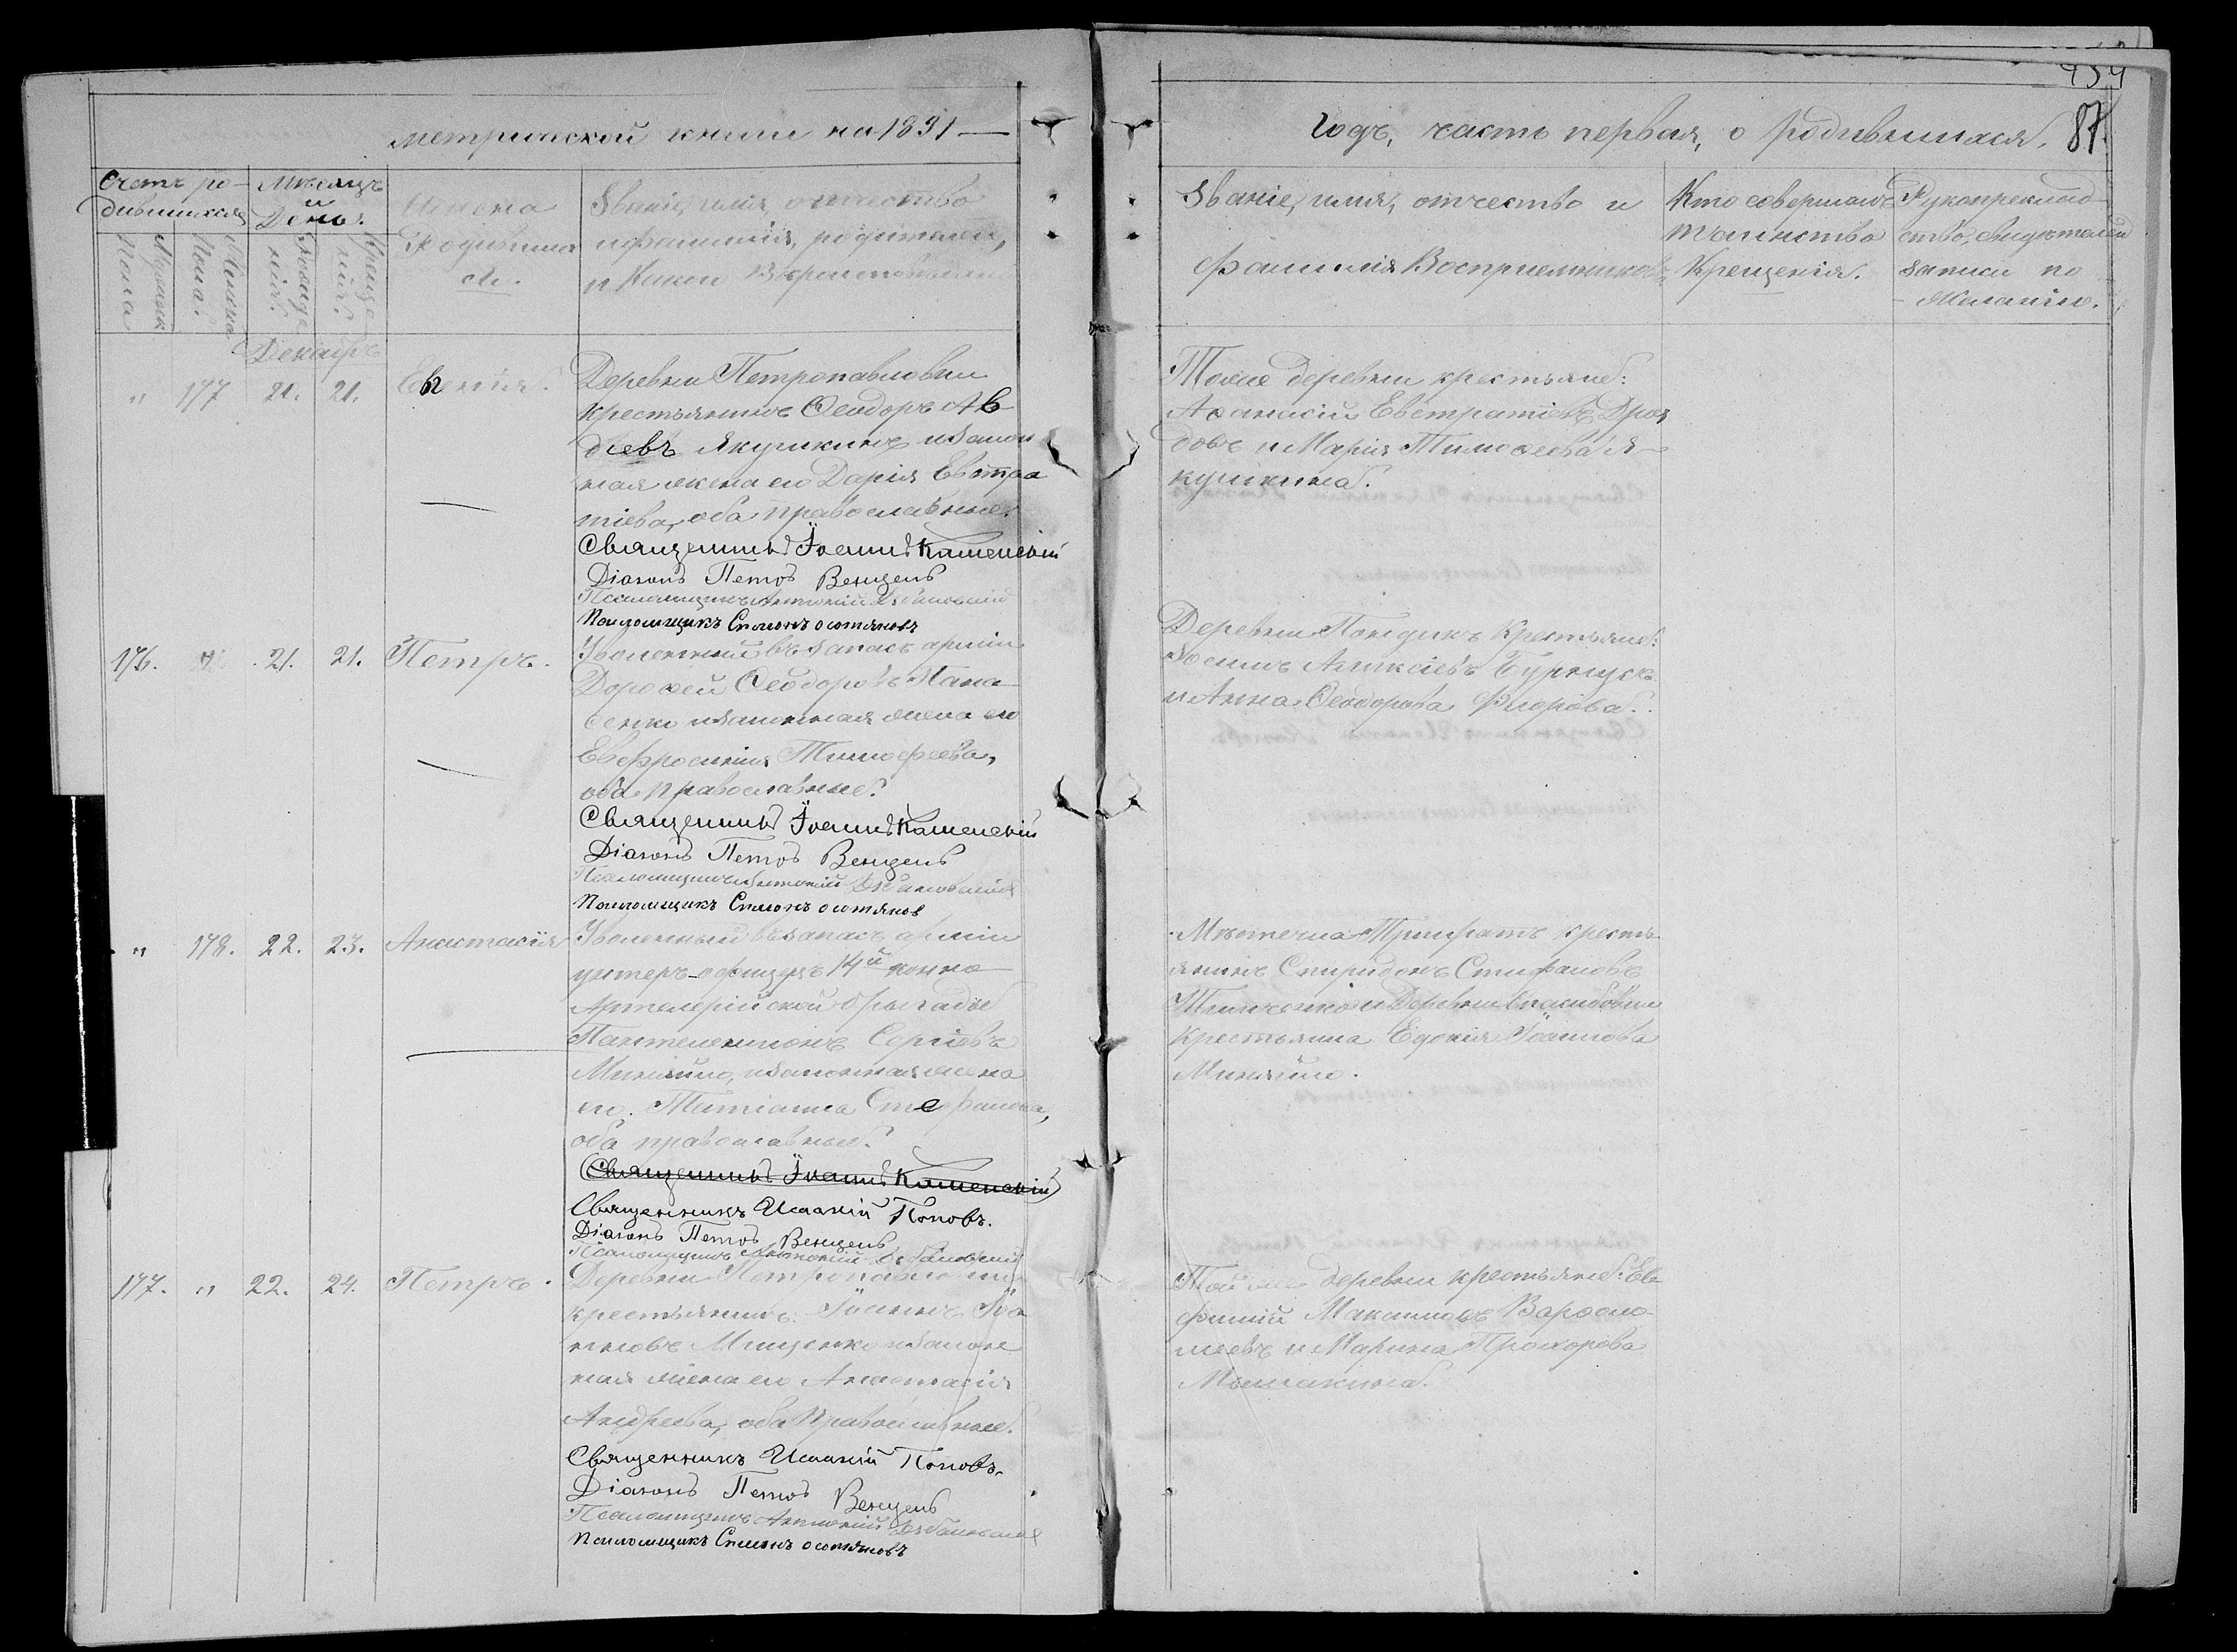 454
метрической книги на 1891
годъ, часть первая, о родившихся.
87.
Счетъ ро-
дившихся
Мѣсяцъ
и
День.
Имена
Родивших
ся.
Званіе, имя, отчество
и фамилія, родителей,
и какого Вѣроисповѣданія
Мужска
Пола
Женска
Пола.
Рожде
нія.
Креще
нія.
Званіе, имя, отчество и
фамилія Воспріемниковъ.
Кто совершалъ
таинство
Крещенія.
Рукоприклад
ство, свидѣтелей
записи по
желанію.
Декабрь
" 177 21. 21. Евгенія.
Деревни Петропавловки
крестьянинъ Ѳеодоръ Ав-
діевъ Якушкинъ и закон
ная жена его Дарія Евстра
тіева, оба православные.
Священникъ Іоаннъ Каменскій
Діаконъ Петръ Венцель
Псаломщикъ Антоній
Псаломщикъ Симонъ Осотяновъ
Тойже деревни крестьяне:
Аѳанасій Евстратіевъ Дроз
довъ и Марія Тимоѳеева Я-
кушкина.
176. " 21. 21. Петръ.
Уволенный въ запасъ арміи
Дороѳей Ѳеодоровъ Пана-
сенко и законная жена его
Евфросинія Тимофеева,
оба православные.
Священникъ Іоаннъ Каменскій
Діаконъ Петръ Венцель
Псаломщикъ Антоній
Псаломщикъ Симонъ Осотяновъ
Деревни крестьяне:
Алексіевъ
и Анна Ѳеодорова
" 178. 22. 23. Анастасія
Уволенный въ запасъ арміи
унтеръ-офицеръ 14й конно
Артилерійской бригады
Пантелеимонъ Сергіевъ
Миняйло, и законная жена
его Татіанна Стефанова,
оба православные.
Священникъ Іоаннъ Каменскій
Священникъ Исаакій Поповъ.
Діаконъ Петръ Венцель
Псаломщикъ Антоній
Мѣстечка крестья
янинъ Спиридонъ Стефановъ
и Деревни
крестьянка Едокія Іоаннова
Миняйло.
177. " 22. 24. Петръ.
Деревни Петропавловки
крестьянинъ Іоаннъ Іоа
нновъ Мищенко и закон
ная жена его Анастасія
Андреева, оба Православные.
Священникъ Исаакій Поповъ.
Діаконъ Петръ Венцель
Псаломщикъ Антоній
Псаломщикъ Симонъ Осотяновъ
Той же деревни крестьяне: Ев
фимій Максимовъ Варѳоло
меевъ и Марина Прохорова